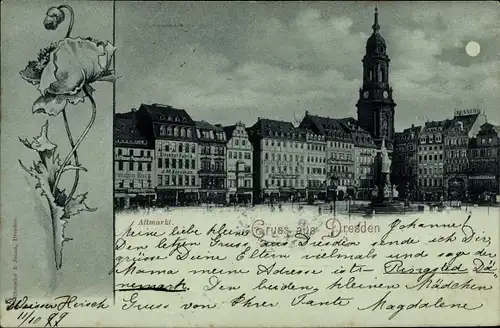 RENNER
Altmarkt.
Gruss aus Dresden
Meine liebe kleine Johanne!
Den letzten Gruss aus Dresden sende ich Dir,
grüsse Deine Eltern vielmals und sage der
Mama meine Adresse ist - Ringsted Dä
nemark Den beiden kleinen Mädchen
Gruss von Ihrer Tante Magdalene
Weisser Hirsch
11/10 99